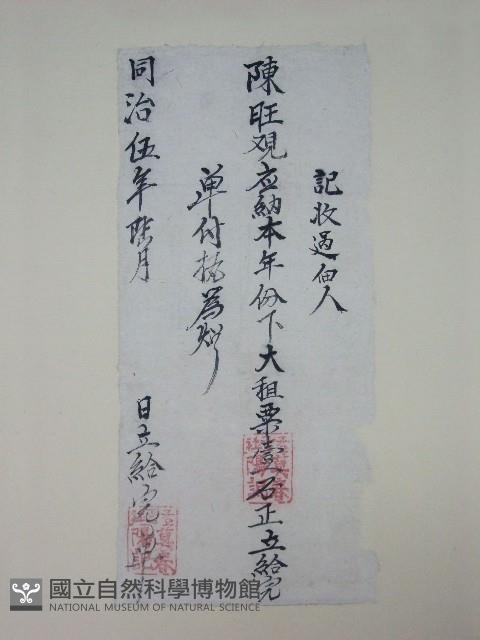 記收過佃人
陳旺观应納本年份下大租粟壹石正立給完
单付执為炤
同治伍年 月
日立給完单
國立自然科學博物館
NATIONAL MUSEUM OF NATURAL SCIENCE